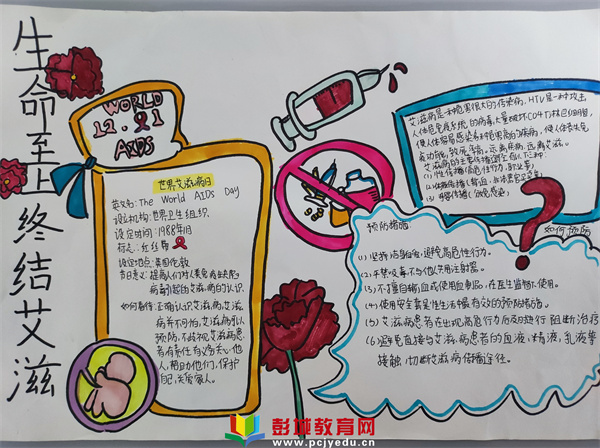 生命至上 终结艾滋
WORLD
12.1
AIDS
世界艾滋病日
英文名: The World AIDS Day
设立机构: 世界卫生组织
设定时间: 1988年1月
标志: 红丝带
设定地点: 英国伦敦
节日意义: 提高人们对人类免疫缺陷
病毒引起的艾滋病的认识.
如何看待: 正确认识艾滋病,艾滋
病并不可怕,艾滋病可以
预防,不歧视艾滋病患
者有责任有义务关心他
人,帮助他们,保护
自己,关爱家人。
艾滋病是一种危害很大的传染病,HIV是一种攻击
人体免疫系统的病毒,大量破坏CD4T淋巴细胞,
使人体易感染各种
艾滋病的主要传播途径有以下三种:
(1)性传播
(2)血液传播
(3)母婴传播
如何预防
预防措施
(1)坚持洁身自爱,避免高危性行为。
(2)严禁吸毒,不与他人共用注射器。
(3)不擅自输血或使用血制品,在医生监督下使用。
(4)使用安全套是性生活中最有效的预防措施。
(5)艾滋病患者在出现高危行为后及时进行阻断治疗
(6)避免直接与艾滋病患者的血液,精液,乳液等
接触,切断艾滋病传播途径。
彭城教育网
www.pcjyedu.cn